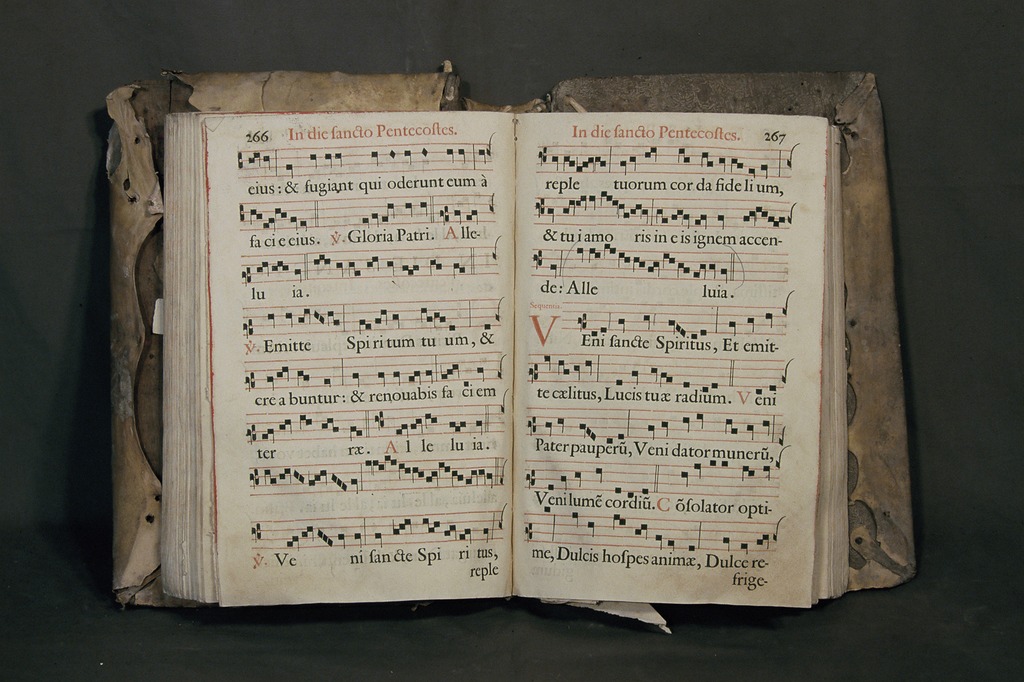 266 In die sancto Pentecostes.
eius: & fugiant qui oderunt eum à
fa ci e eius. ℣. Gloria Patri. Alle-
lu ia.
℣. Emitte Spi ri tum tu um, &
cre a buntur: & renouabis fa ci em
ter ræ. A l le lu ia.
℣. Ve ni san cte Spi ri tus,
reple
In die sancto Pentecostes. 267
reple tuorum cor da fide li um,
& tu i amo ris in e is ignem accen-
de: Alle luia.
Sequentia
VEni sancte Spiritus, Et emit-
te cælitus, Lucis tuæ radium. Veni
Pater pauperũ, Veni dator munerũ,
Veni lumẽ cordiũ. Cõsolator opti-
me, Dulcis hospes animæ, Dulce re-
frige-